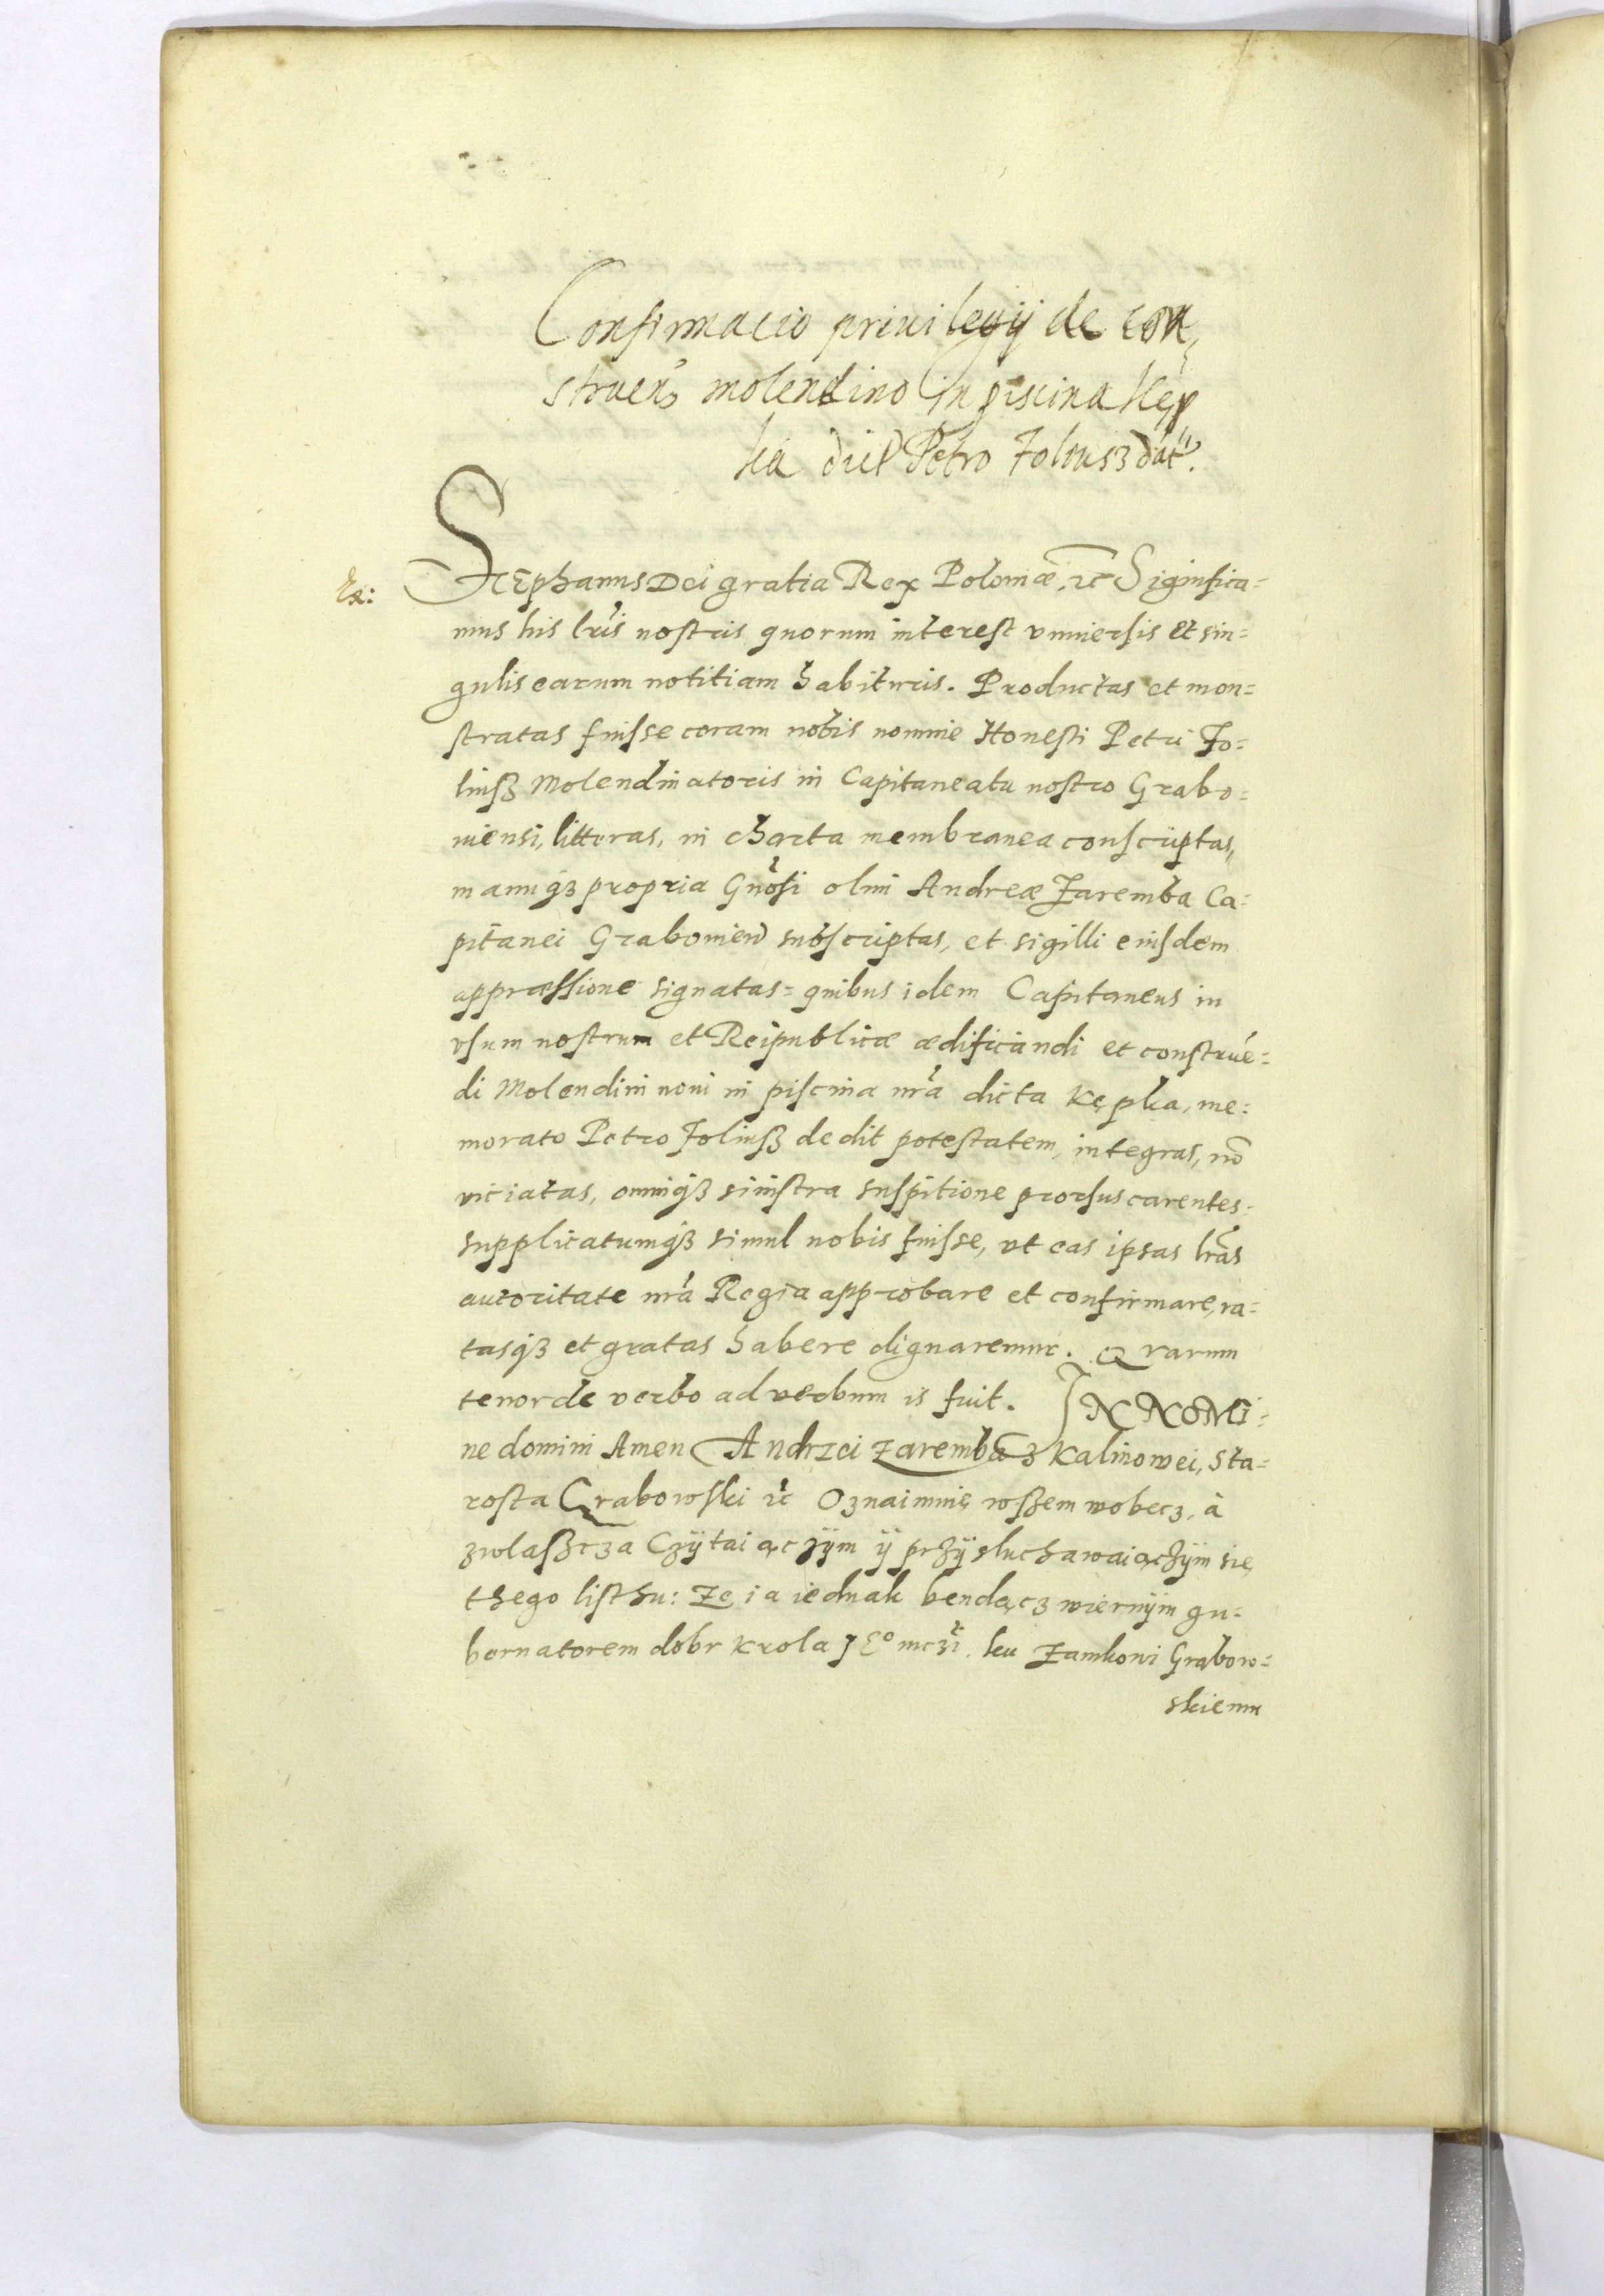 Confirmacio priuilegij de con,
struen̄ molendino in piscina Kęp
ka dict Petro Joliusz dat.
Ex:
Stephanus Dei gratia Rex Poloniæ, ꝛc Significa=
mus his lr̃is nostris quorum interest vniuersis et sin=
gulis earum notitiam habituris. Productas et mon=
stratas fuisse coram nobis nomine Honesti Petri Jo=
liusz Molendinatoris in Capitaneatu nostro Grabo=
uiensi, litteras, in charta membranea conscriptas,
manuqȝ propria Gnosi olim Andreæ Zaremba Ca=
pitanei Grabouien̄ subscriptas, et sigilli eiusdem
appræssione signatas= quibus idem Capitaneus in
vsum nostrum et Reipublicæ ædificandi et construē=
di Molendini noui in piscina nr̃a dicta Kępka, me=
morato Petro Joliusz dedit potestatem, integras, nō
viciatas, omniqȝ sinistra suspitione prorsus carentes=
supplicatumqȝ simul nobis fuisse, vt eas ipsas lr̃as
autoritate nr̃a Regia approbare et confirmare, ra=
tasqȝ et gratas habere dignaremur. Qvarum
tenor de verbo ad verbum is fuit. IN NOMI=
ne domini Amen Andrzei Zaremba z Kalinowei, Sta=
rosta Grabowski ꝛc Oznaimuię wszem wobecz, à
zwlaszcza Czÿtaiączÿm ÿ przÿsluchawaiączÿm się
thego listhu: Ze ia iednak bendącz wiernÿm gu=
bernatorem dobr Krola Jᵒ mczi. ku Zamkowi Grabow=
skiemu